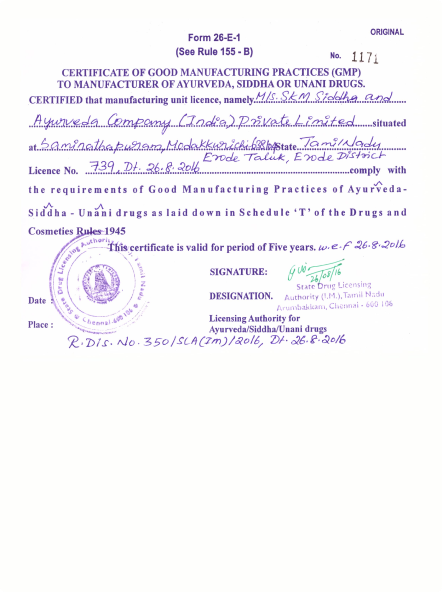 ORIGINAL
Form 26-E-1
(See Rule 155 - B)
No. 1171
CERTIFICATE OF GOOD MANUFACTURING PRACTICES (GMP)
TO MANUFACTURER OF AYURVEDA, SIDDHA OR UNANI DRUGS.
CERTIFIED that manufacturing unit licence, namely M/s. SKM Siddha and
Ayurveda Company (India) Private Limited situated
at Saminathapuram, Modakkurichi State Tamil Nadu
Erode Taluk, Erode District
Licence No. 739, Dt. 26.8.2016 comply with
the requirements of Good Manufacturing Practices of Ayurveda-
Siddha - Unani drugs as laid down in Schedule 'T' of the Drugs and
Cosmeties Rules 1945
This certificate is valid for period of Five years. w.e.f 26.8.2016
SIGNATURE:
26/08/16
State Drug Licensing
DESIGNATION. Authority (I.M.), Tamil Nadu
Arumbakkam, Chennai - 600 106
Date :
State Drug Licensing Authority Tamil Nadu Chennai-600 106
Licensing Authority for
Place :
Ayurveda/Siddha/Unani drugs
R.Dis. No. 350/SLA(Im)/2016, Dt. 26.8.2016